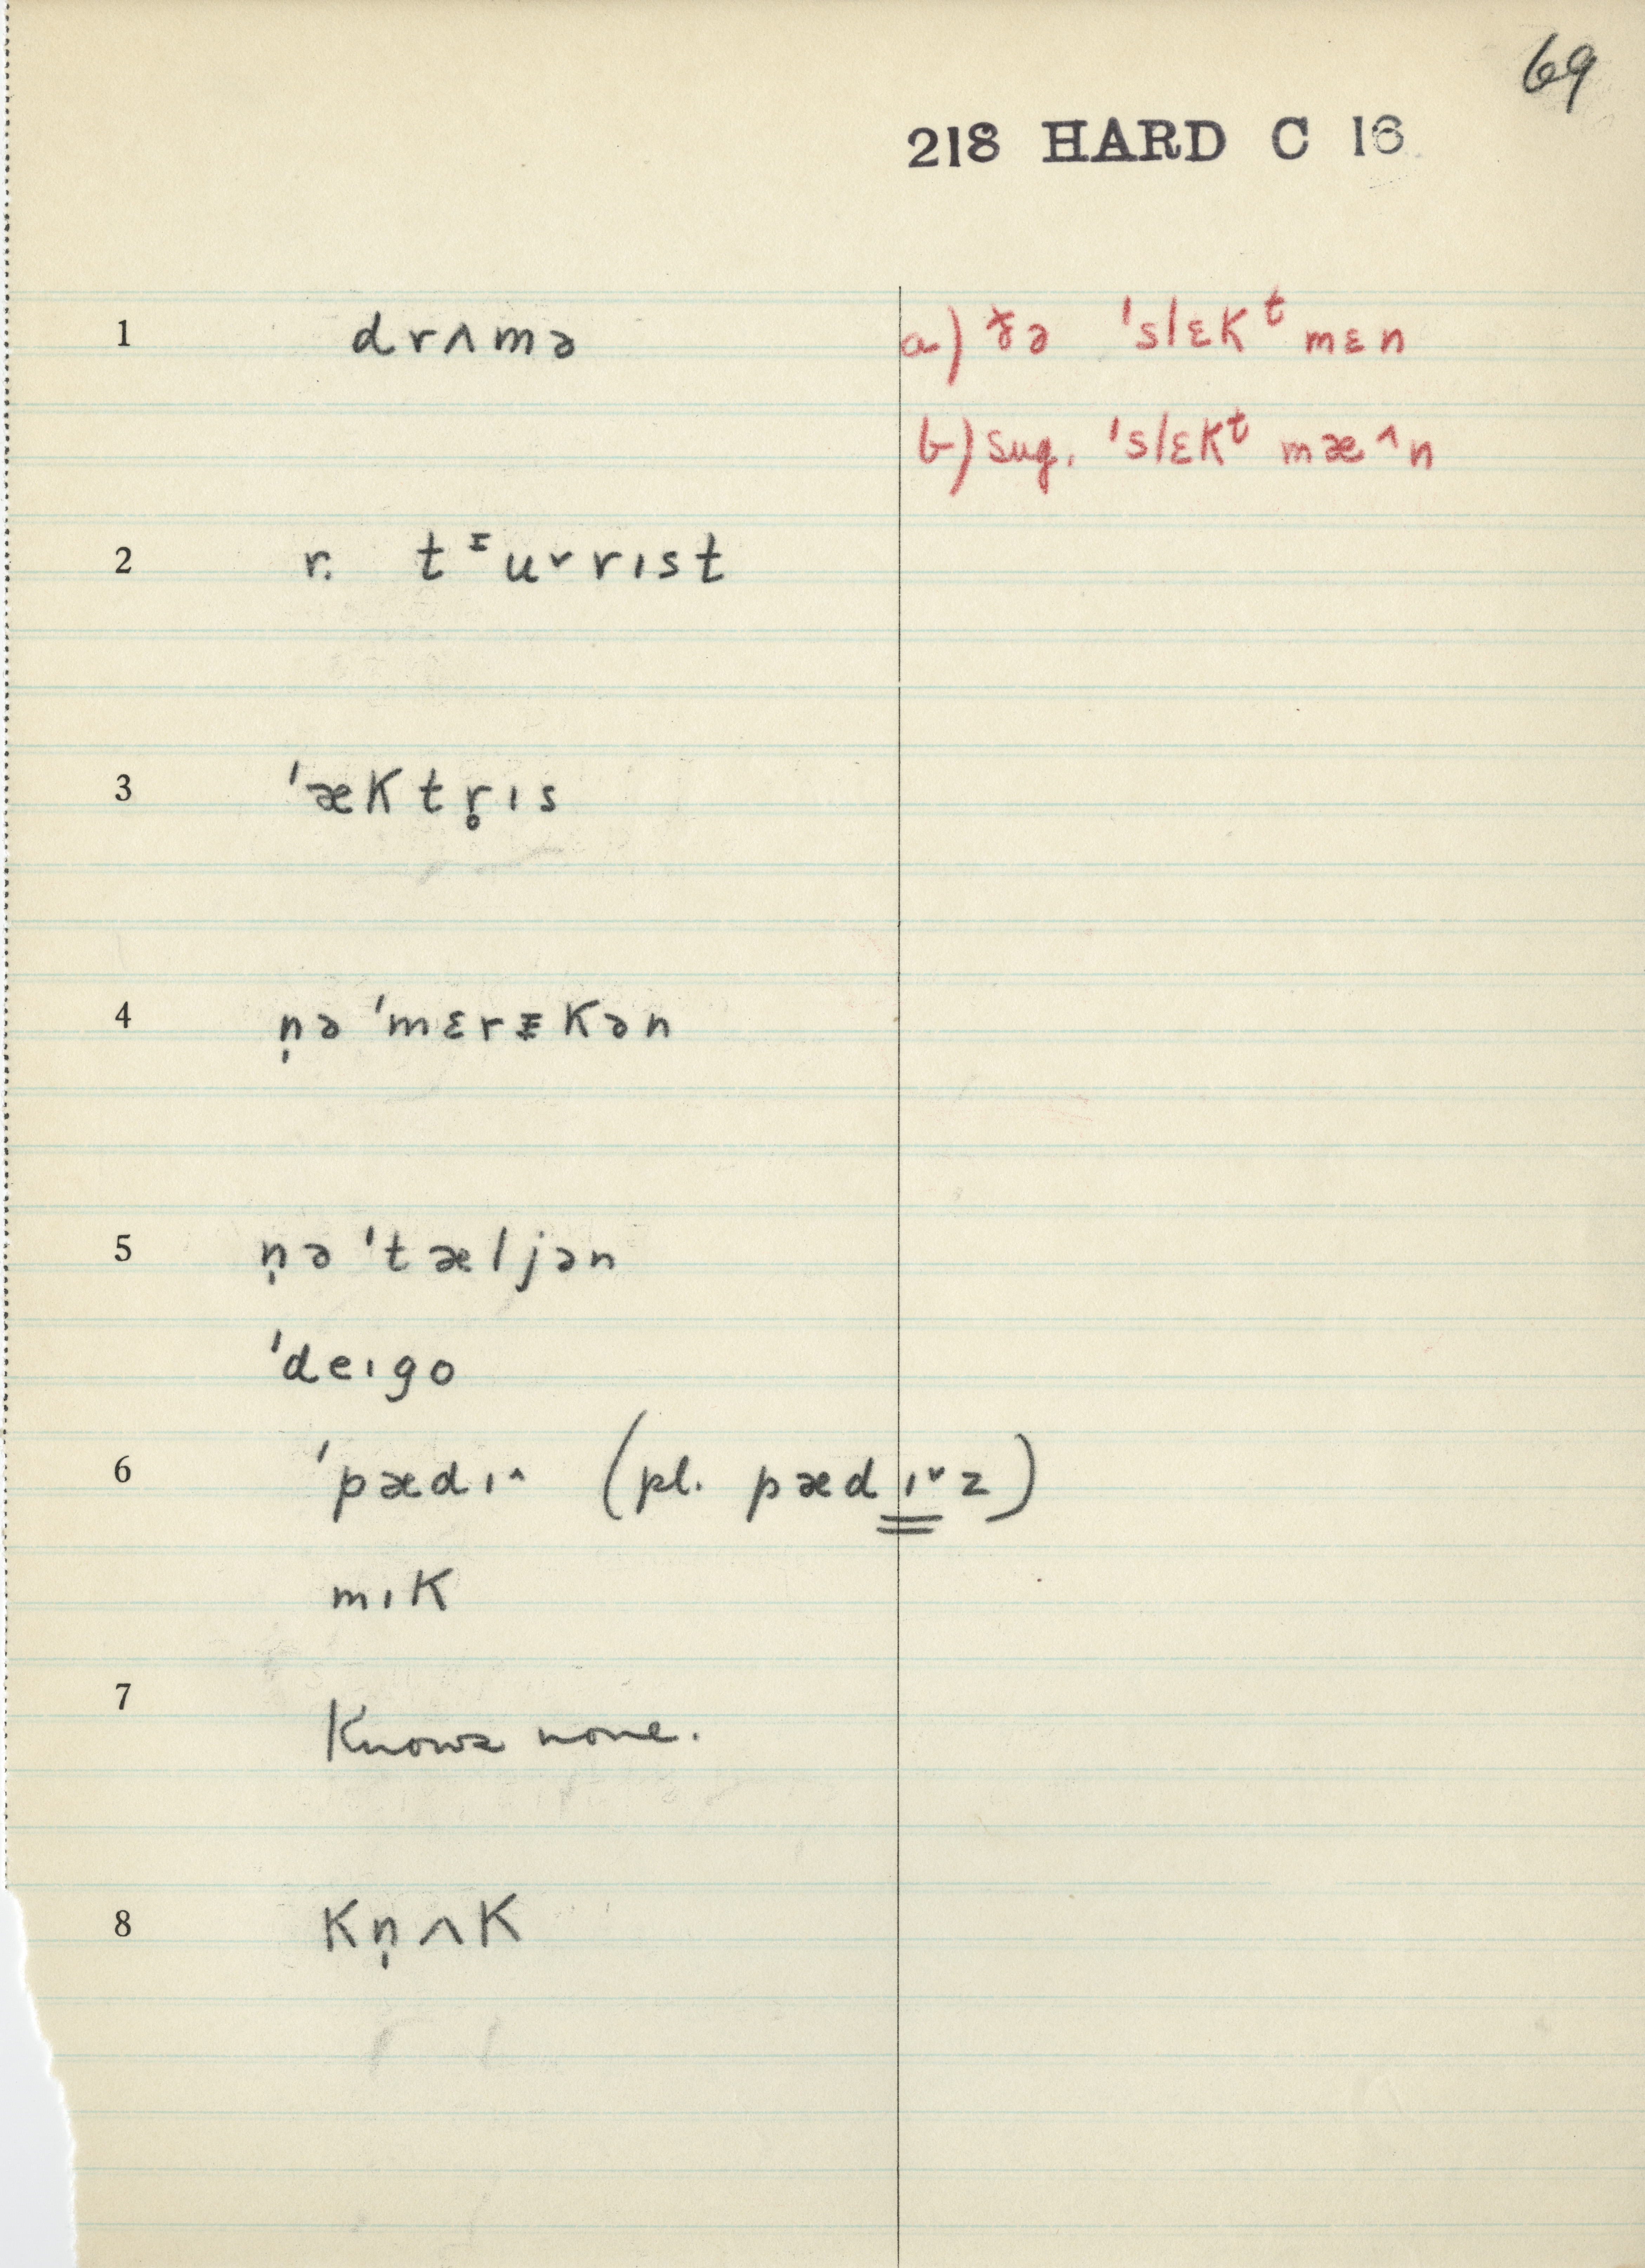 69
218 HARD C 16
1 drʌmə
a) ðə ˈslɛkᵗ mɛn
b) sug. ˈslɛkᵗ mæ^n
2 r. tᵻu˅rɪst
3 ˈæktr̥ɪs
4 n̩ə ˈmɛrᵻkən
5 n̩ə ˈtæljən
ˈdeɪgo
6 ˈpædɪ^ (pl. pædɪ˅z)
mɪk
7 Knows none.
8 kn̩ʌk